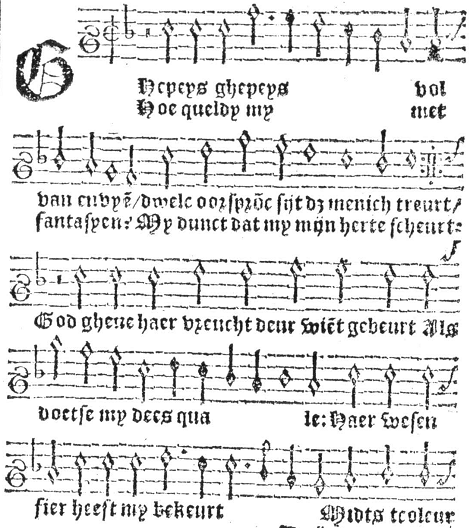 GHepeys ghepeys vol
Hoe queldy my met
van envyē/dwelc oorsprōc sijt dz menich treurt/
fantasyen? My dunct dat my mijn herte scheurt:
God gheve haer vreucht deur wiēt gebeurt Als
doetse my dees qua le: Haer wesen
fier heeft my bekeurt Midts tcoleur